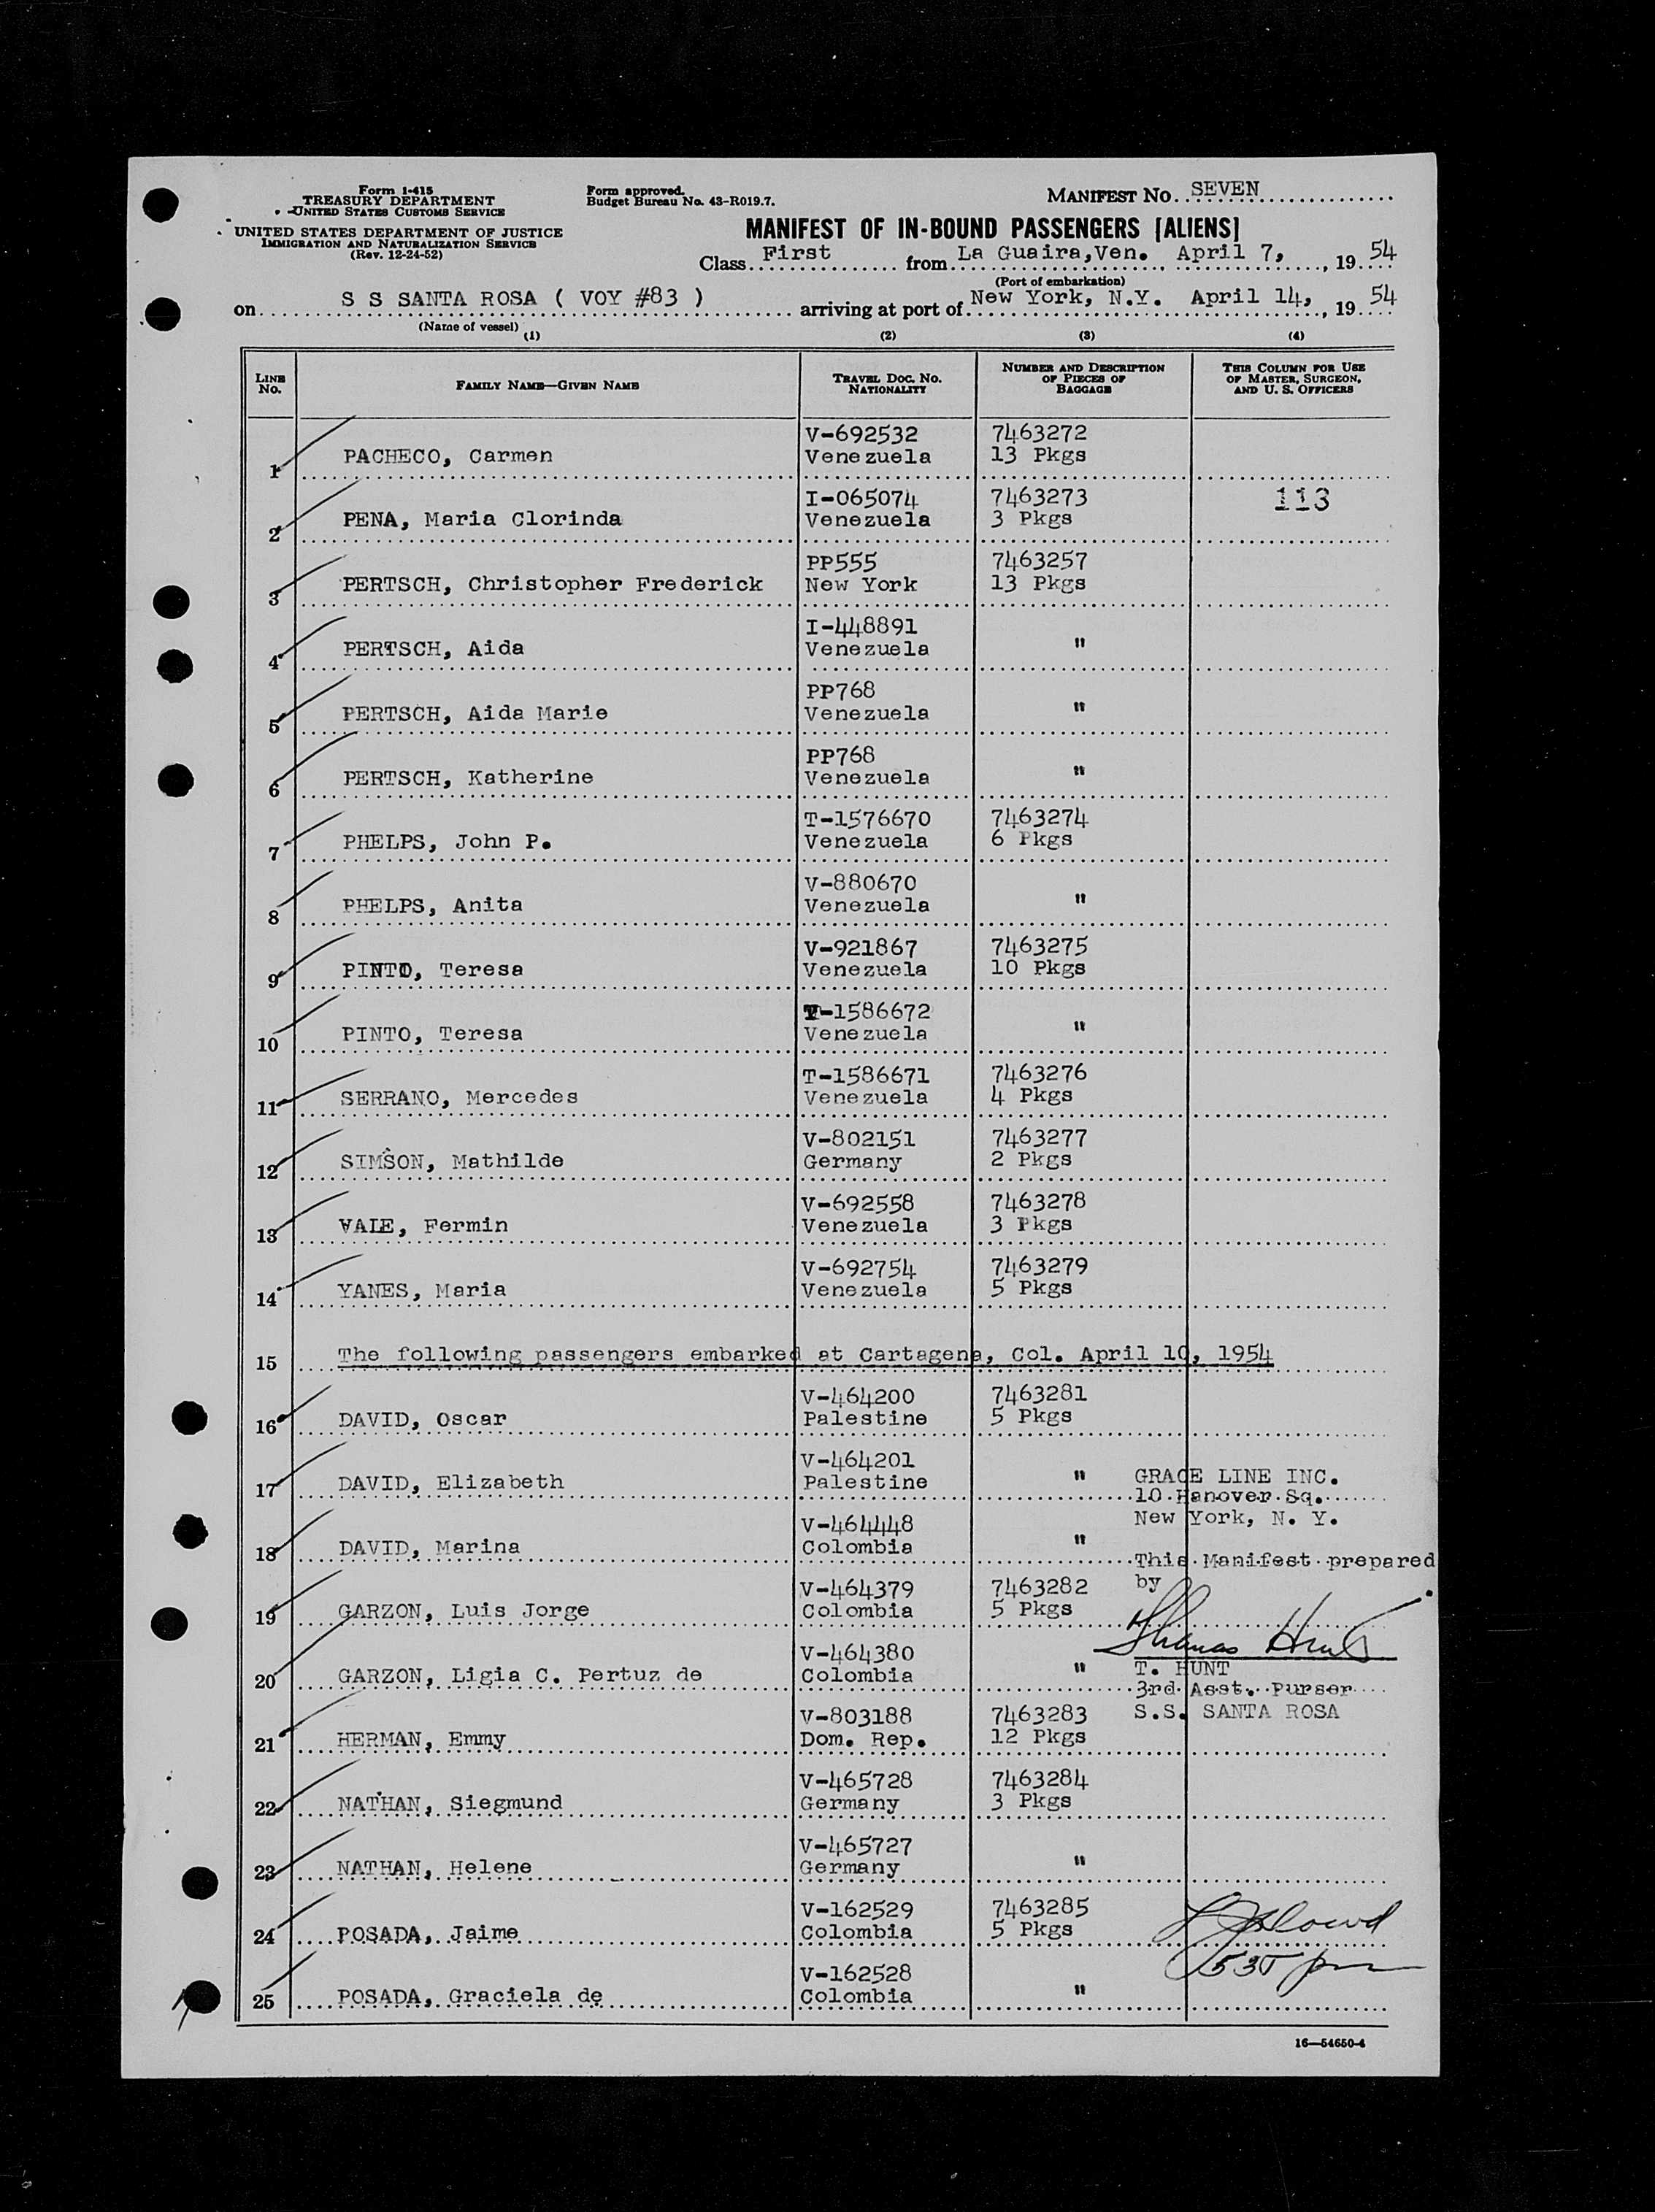 Form I-415
TREASURY DEPARTMENT
UNITED STATES CUSTOMS SERVICE
UNITED STATES DEPARTMENT OF JUSTICE
IMMIGRATION AND NATURALIZATION SERVICE
(Rev. 12-24-52)
Form approved.
Budget Bureau No. 43-R019.7.
MANIFEST NO. SEVEN
MANIFEST OF IN-BOUND PASSENGERS [ALIENS]
Class First from La Guaira, Ven. April 7, , 19 54
(Port of embarkation)
on S S SANTA ROSA ( VOY #83 ) arriving at port of New York, N.Y. April 14, , 19 54
(Name of vessel)
(1) (2) (3) (4)
LINE NO. FAMILY NAME—GIVEN NAME TRAVEL DOC. NO. NATIONALITY NUMBER AND DESCRIPTION OF PIECES OF BAGGAGE THIS COLUMN FOR USE OF MASTER, SURGEON, AND U. S. OFFICERS
V-692532 7463272
1 PACHECO, Carmen Venezuela 13 Pkgs
I-065074 7463273 113
2 PENA, Maria Clorinda Venezuela 3 Pkgs
PP555 7463257
3 PERTSCH, Christopher Frederick New York 13 Pkgs
I-448891
4 PERTSCH, Aida Venezuela "
PP768
5 PERTSCH, Aida Marie Venezuela "
PP768
6 PERTSCH, Katherine Venezuela "
T-1576670 7463274
7 PHELPS, John P. Venezuela 6 Pkgs
V-880670
8 PHELPS, Anita Venezuela "
V-921867 7463275
9 PINTO, Teresa Venezuela 10 Pkgs
T-1586672
10 PINTO, Teresa Venezuela "
T-1586671 7463276
11 SERRANO, Mercedes Venezuela 4 Pkgs
V-802151 7463277
12 SIMSON, Mathilde Germany 2 Pkgs
V-692558 7463278
13 VALE, Fermin Venezuela 3 Pkgs
V-692754 7463279
14 YANES, Maria Venezuela 5 Pkgs
15 The following passengers embarked at Cartagena, Col. April 10, 1954
V-464200 7463281
16 DAVID, Oscar Palestine 5 Pkgs
V-464201
17 DAVID, Elizabeth Palestine " GRACE LINE INC.
10 Hanover Sq.
New York, N. Y.
V-464448
18 DAVID, Marina Colombia "
This Manifest prepared
by
V-464379 7463282
19 GARZON, Luis Jorge Colombia 5 Pkgs
Thomas Hunt
V-464380
20 GARZON, Ligia C. Pertuz de Colombia " T. HUNT
3rd Asst. Purser
S.S. SANTA ROSA
V-803188 7463283
21 HERMAN, Emmy Dom. Rep. 12 Pkgs
V-465728 7463284
22 NATHAN, Siegmund Germany 3 Pkgs
V-465727
23 NATHAN, Helene Germany "
V-162529 7463285
24 POSADA, Jaime Colombia 5 Pkgs
535 pm
V-162528
25 POSADA, Graciela de Colombia "
16—54650-4